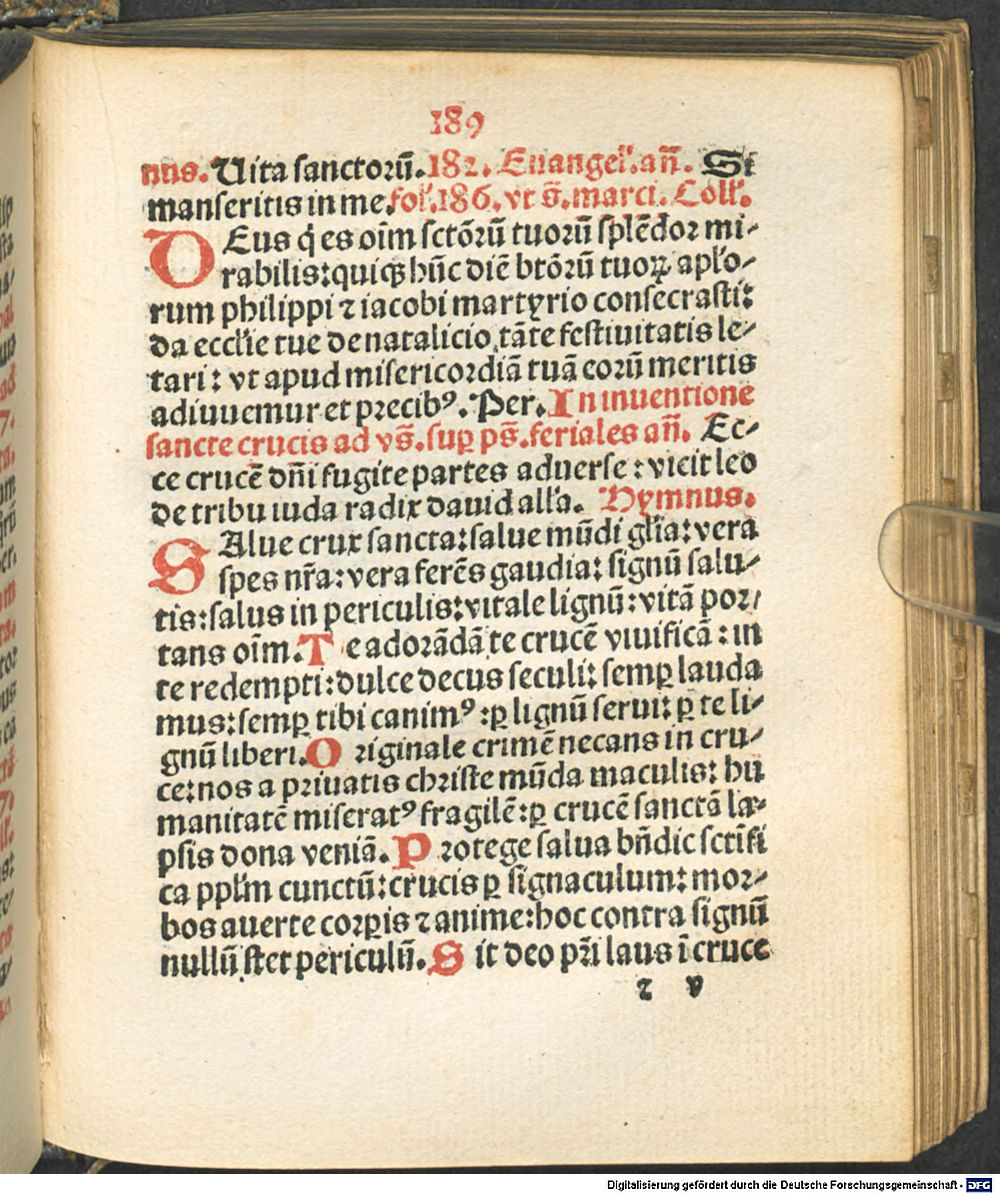 189
nus. Uita sanctoꝛū. 182. Euangel̓. an̄. Si
manseritis in me. fol̓. 186. vt s̄. marci. Coll̓.
DEus q̇ es oīm sctōꝛū tuoꝛū splēdoꝛ mi⸗
rabilis: quiqꝫ hūc diē btōꝛū tuoꝝ apl̓o⸗
rum philippi ⁊ iacobi martyrio consecrasti:
da eccl̓ie tue de natalicio tāte festiuitatis le⸗
tari: vt apud misericoꝛdiā tuā eoꝛū meritis
adiuuemur et pꝛecibꝰ. Per. In inuentione
sancte crucis ad vs̄. suꝑ ps̄. feriales an̄. Ec⸗
ce crucē dn̄i fugite partes aduerse: vicit leo
de tribu iuda radix dauid all̓a. Hymnus.
SAlue crux sancta: salue mūdi gl̓ia: vera
spes nr̄a: vera ferēs gaudia: signū salu⸗
tis: salus in periculis: vitale lignū: vitā poꝛ⸗
tans oīm. Te adoꝛādā te crucē viuificā: in
te redempti: dulce decus seculi: semꝑ lauda
mus: semꝑ tibi canimꝰ: ꝑ lignū serui: ꝑ te li⸗
gnū liberi. Oꝛiginale crimē necans in cru⸗
ce: nos a pꝛiuatis christe mūda maculis: hu
manitatē miseratꝰ fragilē: ꝑ crucē sanctā la⸗
psis dona veniā. Pꝛotege salua bn̄dic sctīfi
ca ppl̄m cunctū: crucis ꝑ signaculum: moꝛ⸗
bos auerte coꝛꝑis ⁊ anime: hoc contra signū
nullū stet periculū. Sit deo pr̄i laus ī cruce
z v
Digitalisierung gefördert durch die Deutsche Forschungsgemeinschaft - DFG